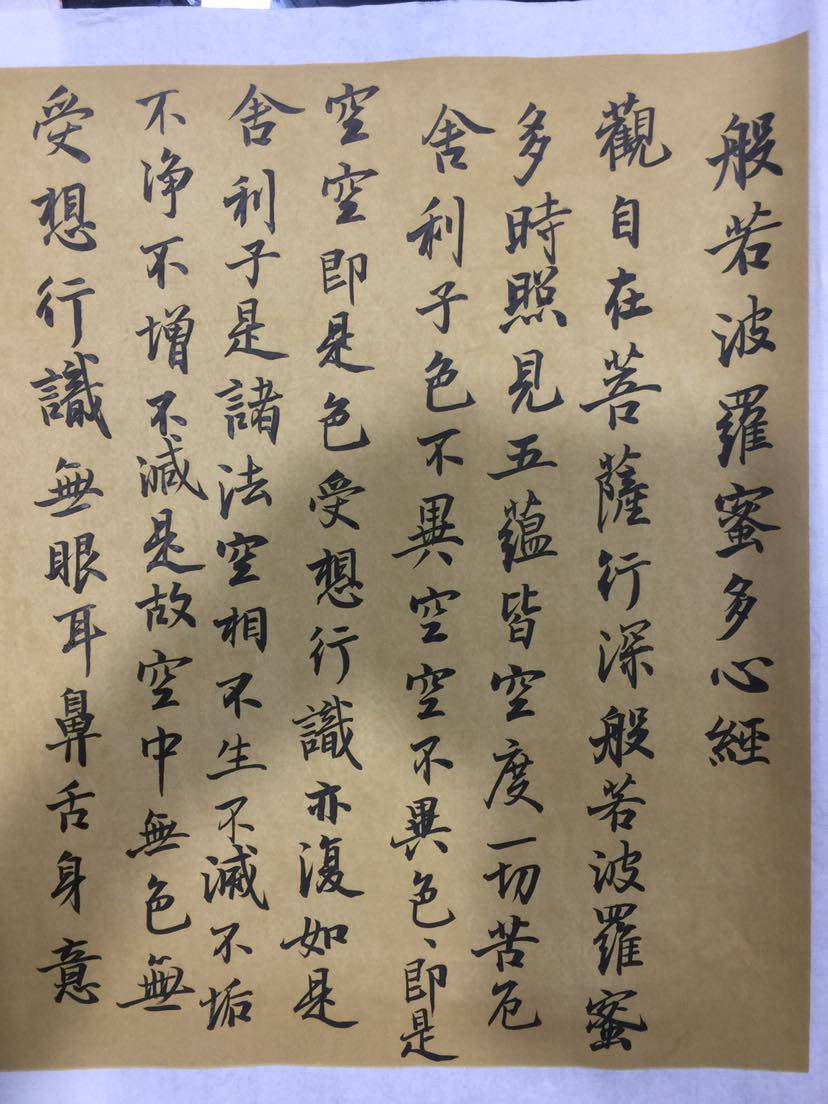 般若波羅蜜多心經
觀自在菩薩行深般若波羅蜜
多時照見五蘊皆空度一切苦厄
舍利子色不異空空不異色、即是
空空即是色受想行識亦復如是
舍利子是諸法空相不生不滅不垢
不净不增不减是故空中無色無
受想行識無眼耳鼻舌身意